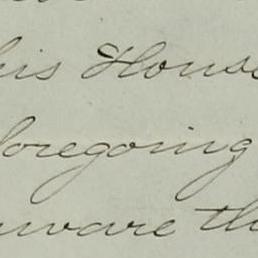 his House
foregoing
aware th